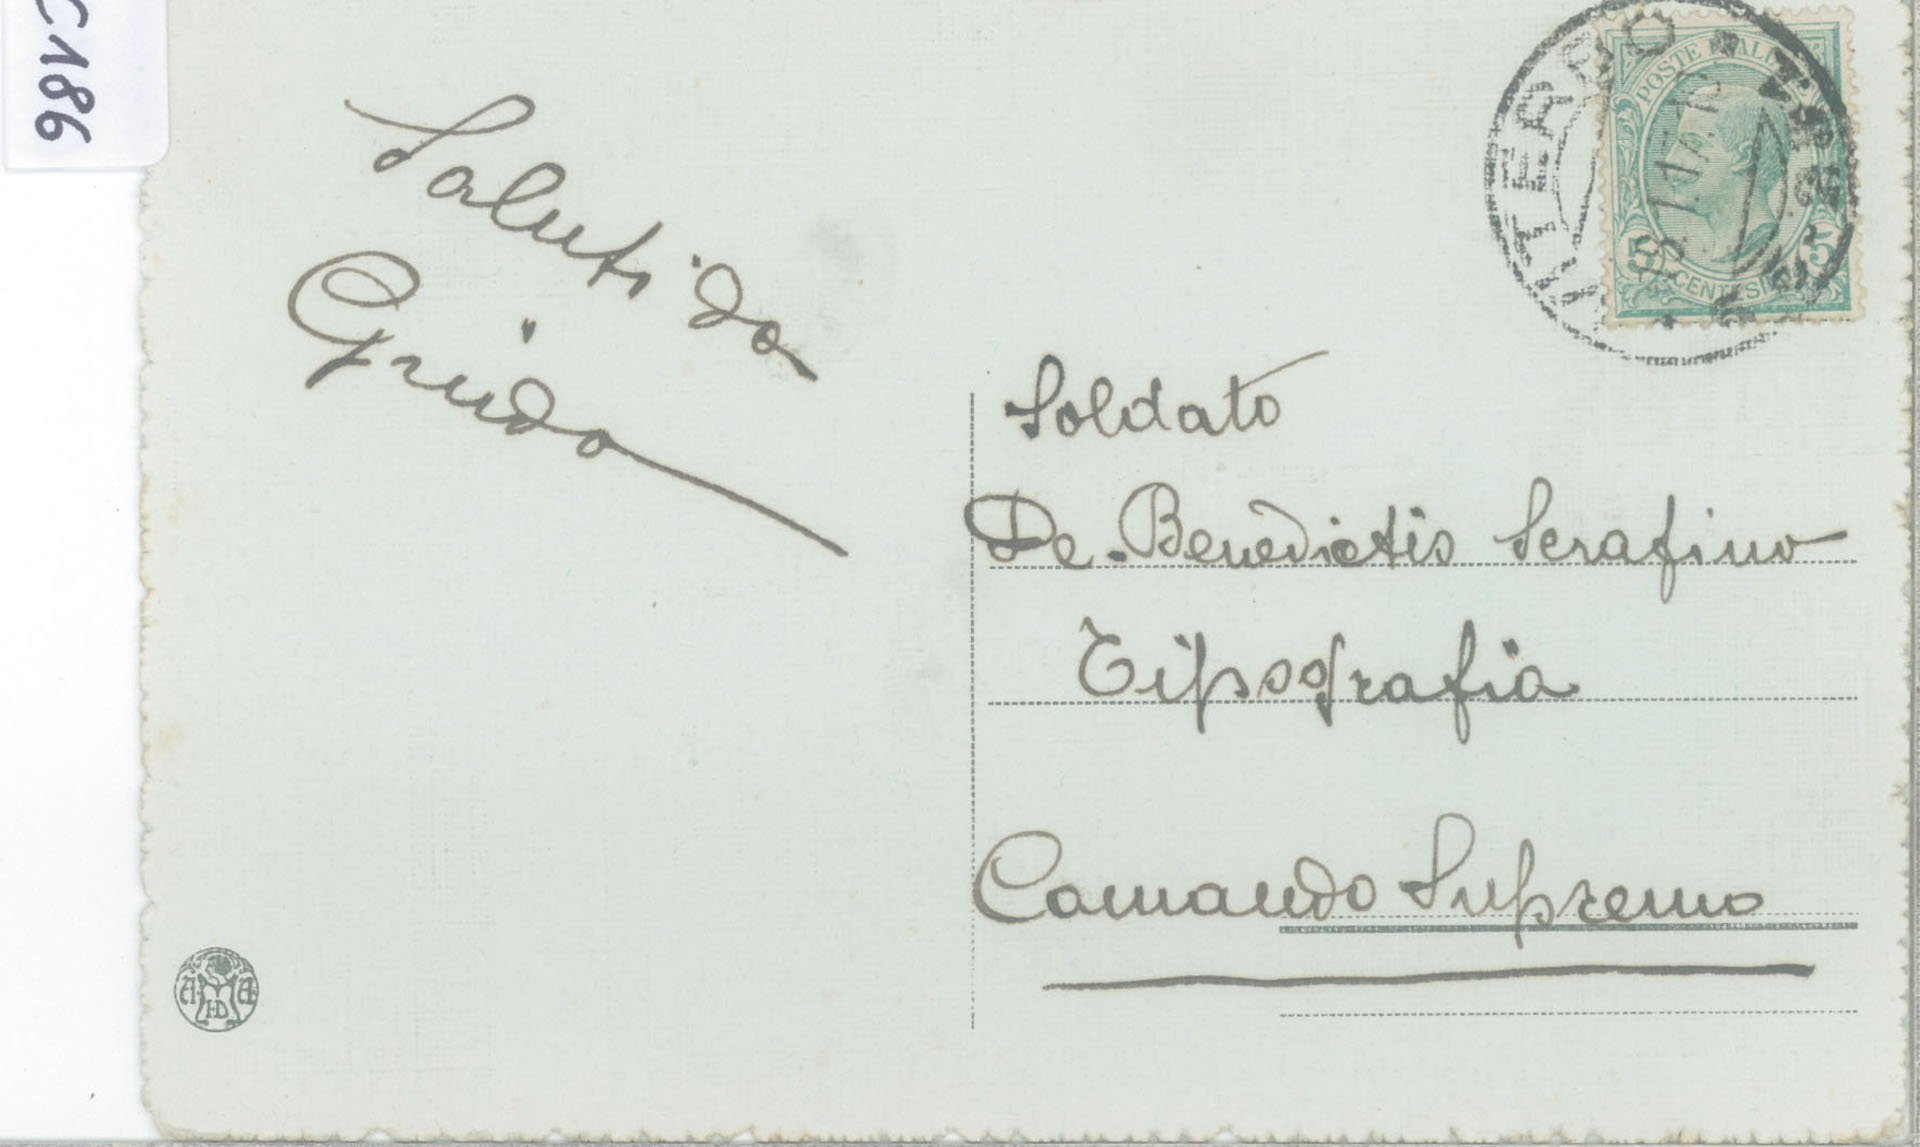 C186
Saluti da
Guido
POSTE ITALIANE
5 CENTESIMI 5
VITERBO
Soldato
De-Benedictis Serafino
Tipografia
Comando Supremo